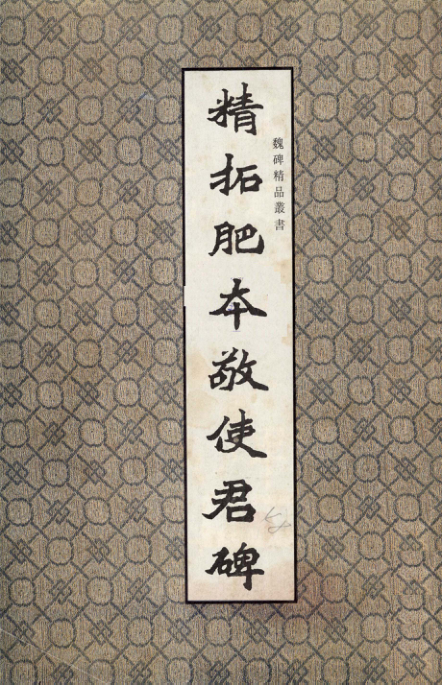 魏碑精品叢書
精拓肥本敬使君碑